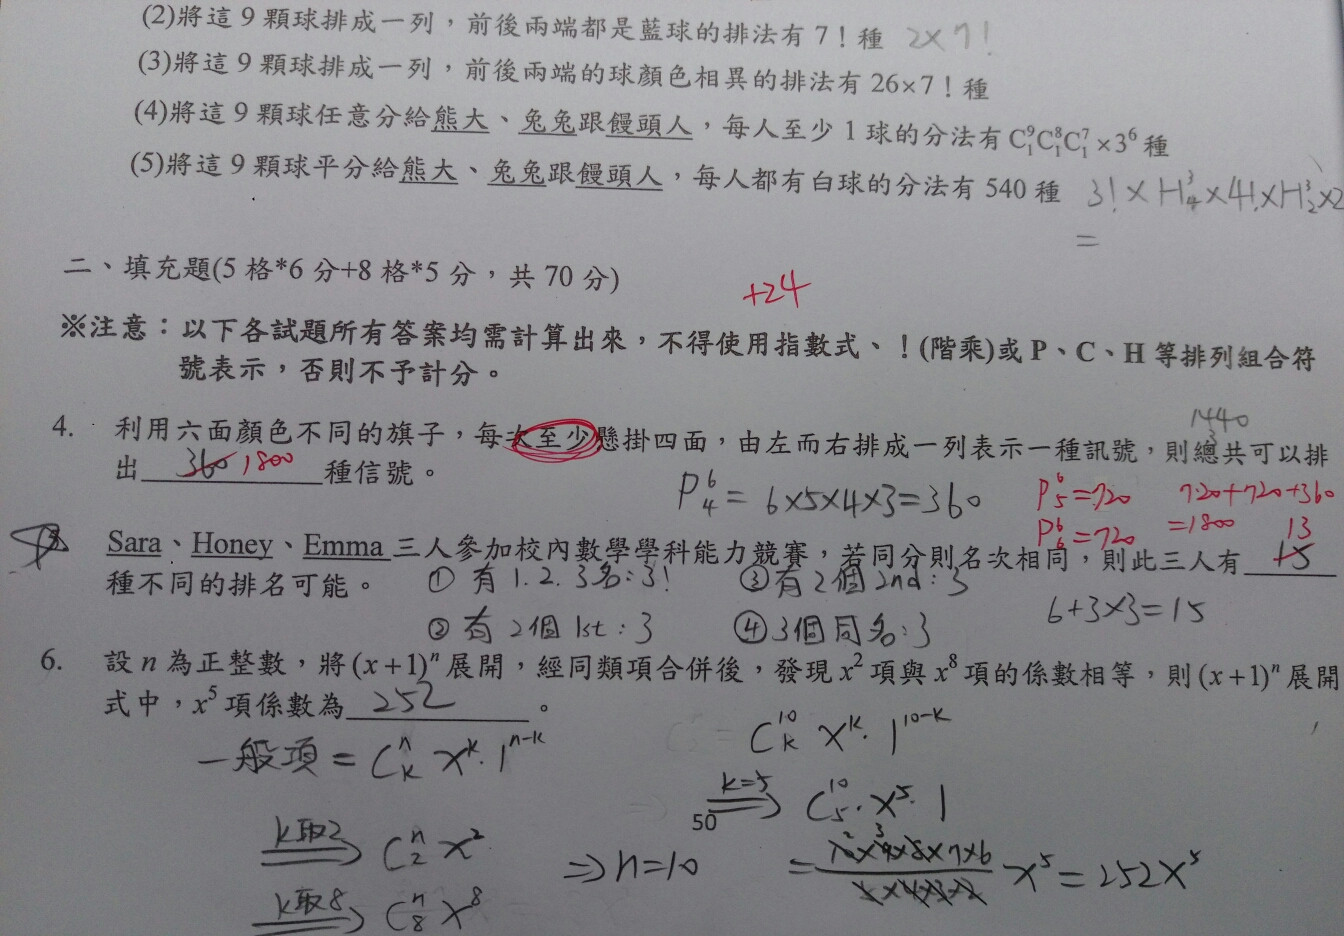 (2)將這 9 顆球排成一列，前後兩端都是藍球的排法有 7！種 2×7!
(3)將這 9 顆球排成一列，前後兩端的球顏色相異的排法有 26×7！種
(4)將這 9 顆球任意分給熊大、兔兔跟饅頭人，每人至少 1 球的分法有 C⁹₁C⁸₁C⁷₁×3⁶ 種
(5)將這 9 顆球平分給熊大、兔兔跟饅頭人，每人都有白球的分法有 540 種 3!×H³₄×4!×H³₂×2
=
二、填充題(5 格*6 分+8 格*5 分，共 70 分)
+24
※注意：以下各試題所有答案均需計算出來，不得使用指數式、！(階乘)或 P、C、H 等排列組合符
號表示，否則不予計分。
1440
4. 利用六面顏色不同的旗子，每次至少懸掛四面，由左而右排成一列表示一種訊號，則總共可以排
出 360 1800 種信號。
P⁶₄ = 6×5×4×3=360 P⁶₅=720 720+720+360
P⁶₆=720 =1800 13
Sara、Honey、Emma 三人參加校內數學學科能力競賽，若同分則名次相同，則此三人有 15
種不同的排名可能。 ① 有 1.2.3名:3! ③有2個2nd:3
② 有 2個 1st:3 ④3個同名:3 6+3×3=15
6. 設 n 為正整數，將 (x+1)ⁿ 展開，經同類項合併後，發現 x² 項與 x⁸ 項的係數相等，則 (x+1)ⁿ 展開
式中，x⁵ 項係數為 252 。
一般項 = Cⁿₖ xᵏ·1ⁿ⁻ᵏ C¹⁰ₖ xᵏ·1¹⁰⁻ᵏ
k=5 ⇒ C¹⁰₅·x⁵·1
50
k取2 ⇒ Cⁿ₂ x² ⇒n=10 = x⁵=252x⁵
k取8 ⇒ Cⁿ₈ x⁸